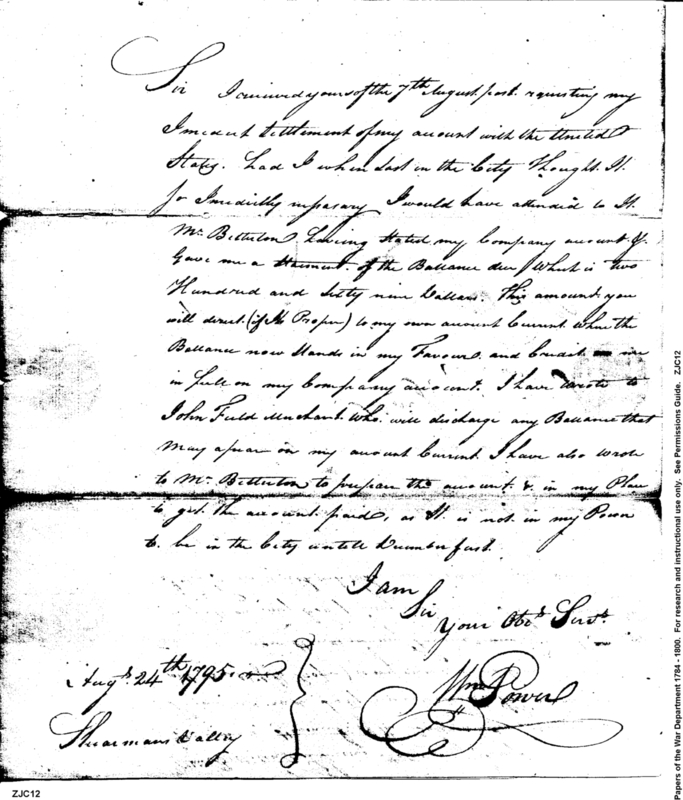 Sir I received yours of the 7th August past requesting my
Imedeat Settlement of my account with the United
States. had I when last in the City thought It.
so Imedeitly nessasary I would have attended to It.
Mr. Betterton having Stated my Company account &
Gave me a Statment of the Ballance due, which is two
Hundred and Sixty nine Dollars. This amount you
will direct (if It Proper) to my own account Current where the
Ballance now Stands in my Favour and Credit me
in full on my Company account. I have wrote to
John Field Merchant who will discharge any Ballance that
may apear on my account Current. I have also wrote
to Mr. Betterton to prepare the account & in my Place
to get the account paid, as It is not in my Power
to be in the City untill December first.
I am
Sir
Your Obt. Servt.
Wm Power
Augt. 24th 1795
Shearmans Valley
ZJC12
Papers of the War Department 1784 - 1800. For research and instructional use only. See Permissions Guide. ZJC12